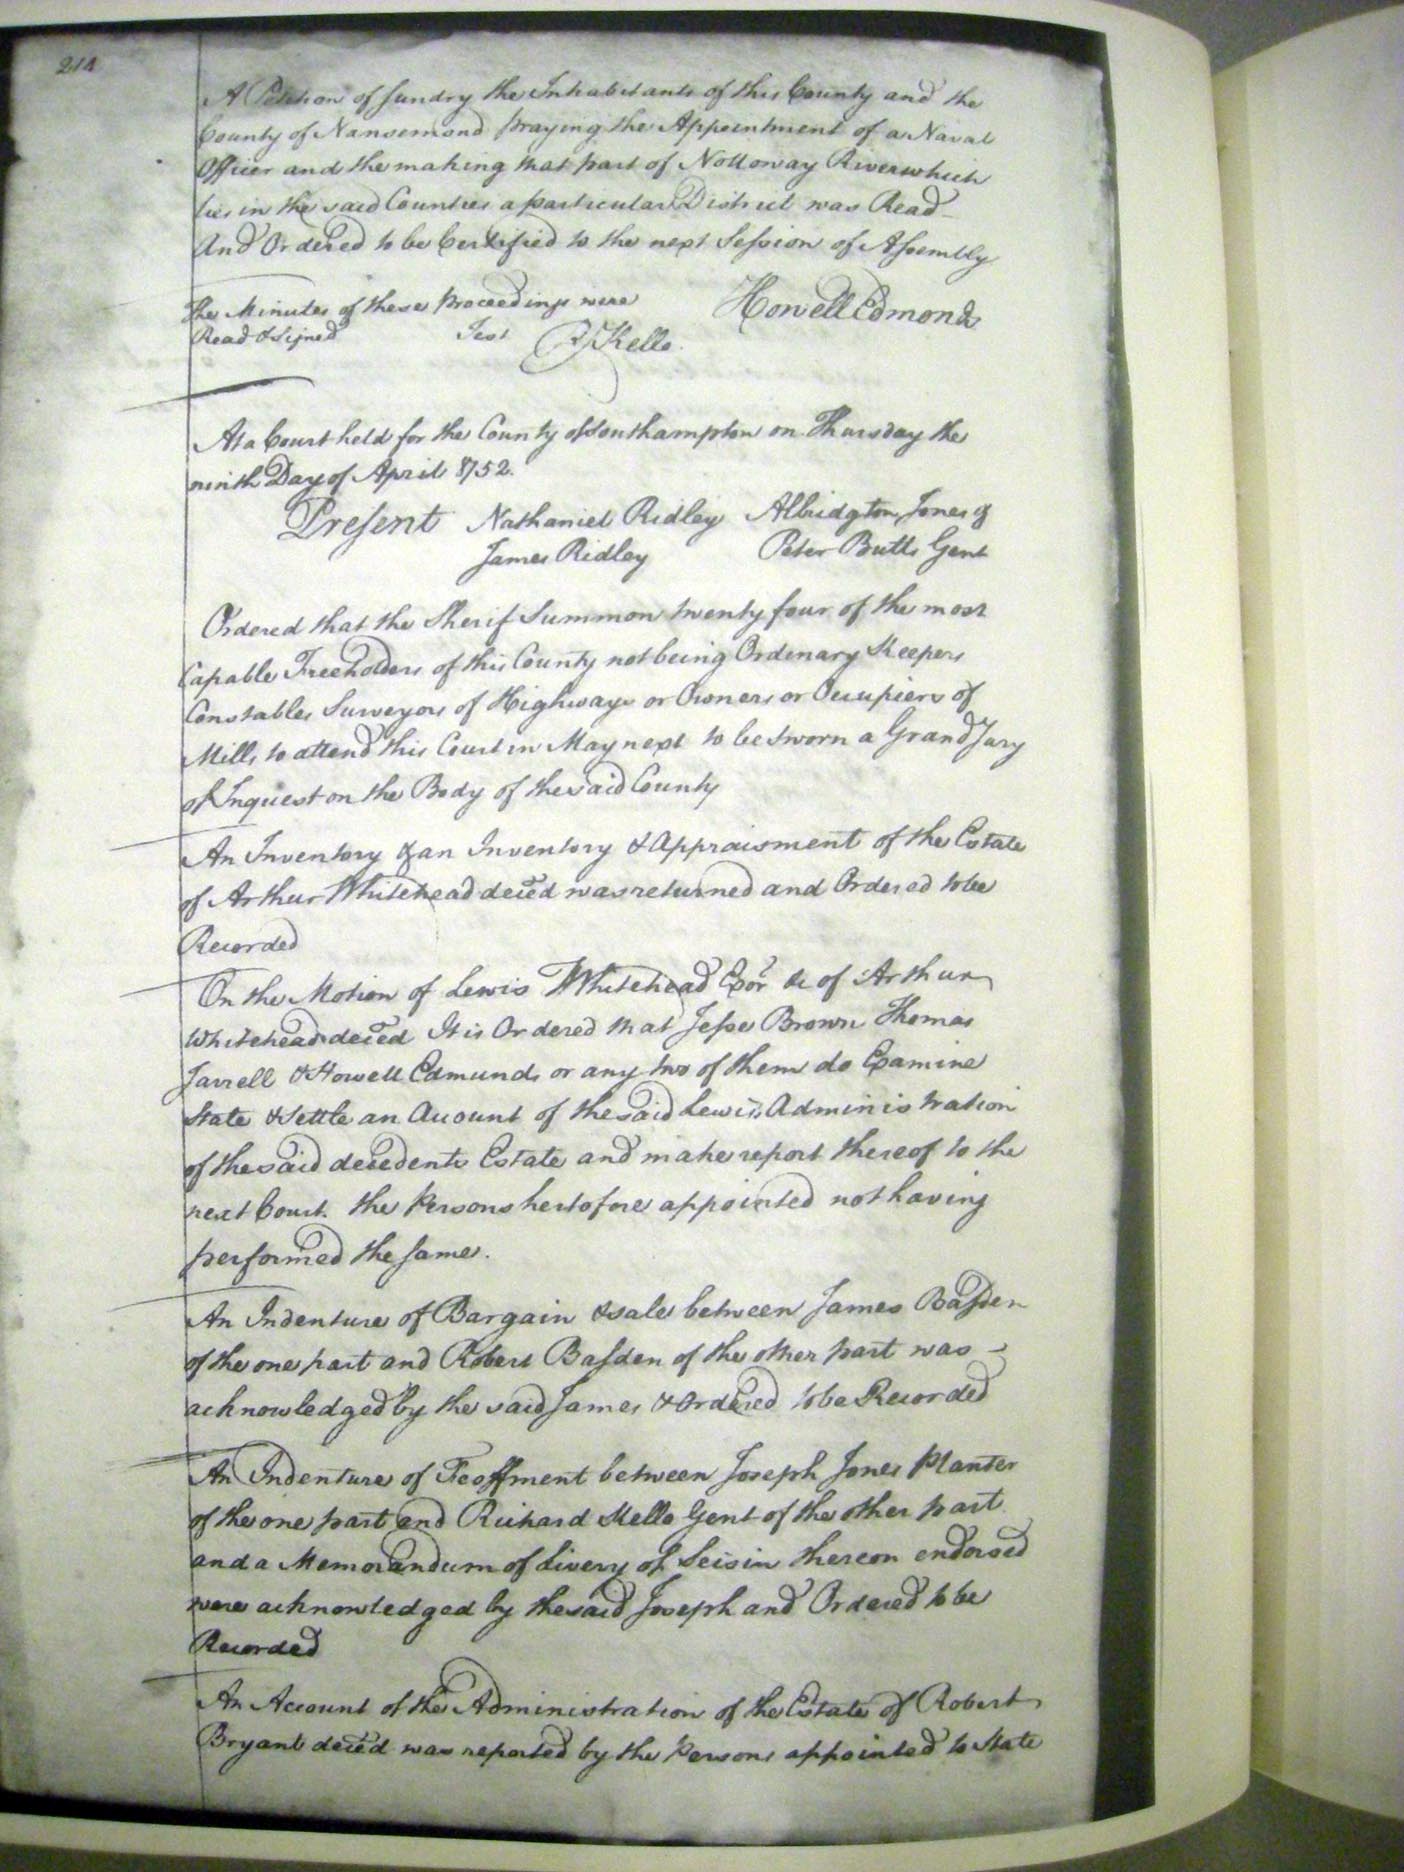 214
A Petition of sundry the Inhabitants of this County and the
County of Nansemond praying the Appointment of a Naval
Officer and the making that part of Nottoway River which
lies in the said Counties a particular District was Read
And Ordered to be Certified to the next Session of Assembly
The Minutes of these Proceedings were Howell Edmonds
Read & Signed Test R Kello
At a Court held for the County of Southampton on Thursday the
ninth Day of April 1752.
Present Nathaniel Ridley Albridgton Jones &
James Ridley Peter Butts Gent
Ordered that the Sherif Summon twenty four of the most
Capable Freeholders of this County not being Ordinary Keepers
Constables Surveyors of Highways or Owners or Occupiers of
Mills to attend this Court in May next to be sworn a Grand Jury
of Inquest on the Body of the said County
An Inventory & an Inventory & Appraisment of the Estate
of Arthur Whitehead deced was returned and Ordered to be
Recorded
On the Motion of Lewis Whitehead Exor &c of Arthur
Whitehead deced It is Ordered that Jesse Brown Thomas
Jarrell & Howell Edmunds or any two of them do Examine
State & Settle an Account of the said Lewis's Administration
of the said decedents Estate and make report thereof to the
next Court. the Persons hertofore appointed not having
performed the same.
An Indenture of Bargain & sale between James Basden
of the one part and Robert Basden of the other part was
acknowledged by the said James & Ordered to be Recorded
An Indenture of Feoffment between Joseph Jones Planter
of the one part and Richard Kello Gent of the other part
and a Memorandum of Livery of Seisin thereon endorsed
were acknowledged by the said Joseph and Ordered to be
Recorded
An Account of the Administration of the Estate of Robert
Bryant deced was reported by the Persons appointed to State